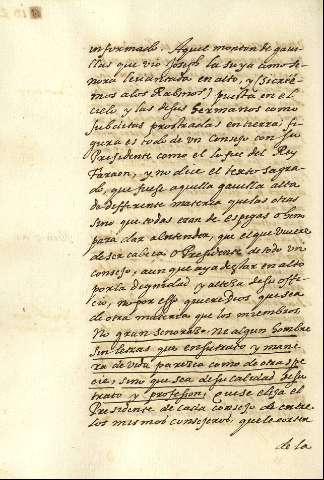 informado. Aquel monton de gaui-
llas que vio Joseph la suya como se-
ñora leuantada en alto, y (si cree-
mos a los Rabinos) puesta en el
cielo y las de sus hermanos como
subditas prostradas en tierra, fi-
gura es todo de un Consejo con su
Presidente como el lo fue del Rey
Faraon, y no dice el texto sagra-
do, que fuese aquella gauilla alta
de differente materia que las otras
sino que todas eran de espigas
para dar a entender, que el que huuiere
de ser cabeça o Presidente de todo un
consejo, aunque aya de estar en alto
por la dignidad y alteza de su offi-
cio, no por esso quiere dios, que sea
de otra materia que los miembros.
No gran señorazo. Ne algun hombre
sin letras que en su trato y mane-
ra de vida paresca como de otra spe-
cie, sino que sea de su calidad de su
trato y profesion, que se elija el
Presidente de cada consejo de entre
los mismos consejeros que le
de la